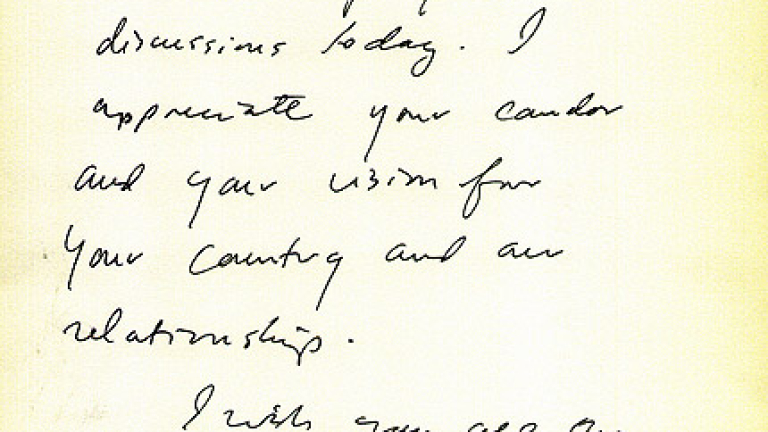 discussions today. I
appreciate your candor
and your vision for
your country and our
relationship.
I wish you all the